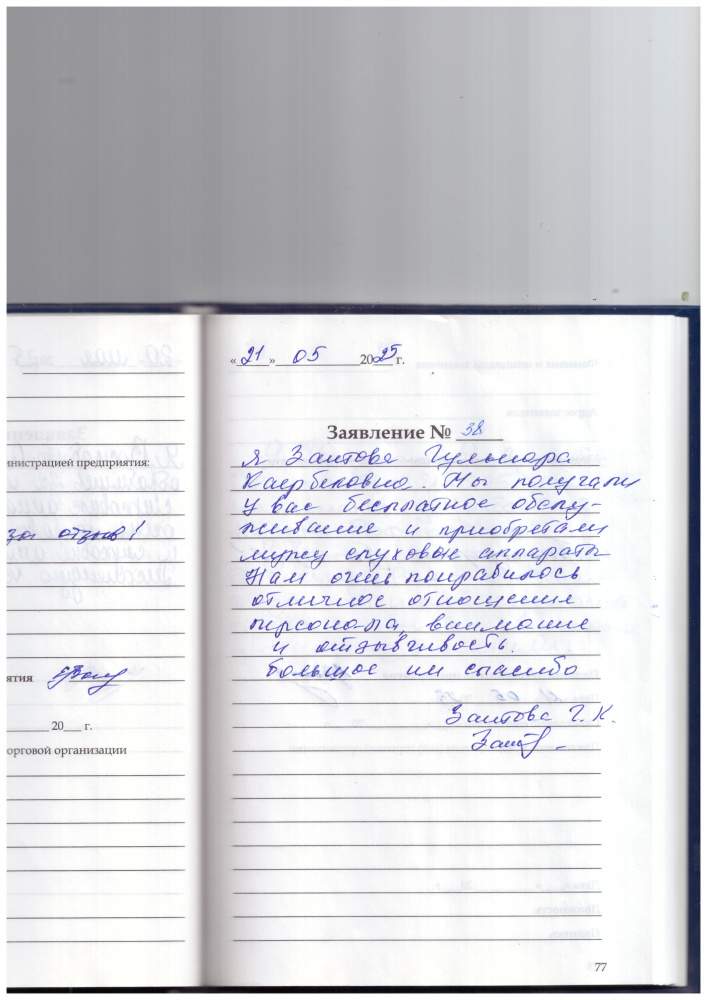 «21» 05 2025 г.
Заявление № 38
я Заитова Гульнара
Каербековна. Мы получали
у вас бесплатное обслу-
живание и приобретали
мужу слуховые аппараты
Нам очень понравилось
отличное отношение
персонала, внимание
и отзывчивость.
Большое им спасибо
Заитова Г. К.
77
министрацией предприятия:
за отзыв!
ятия
20 г.
орговой организации